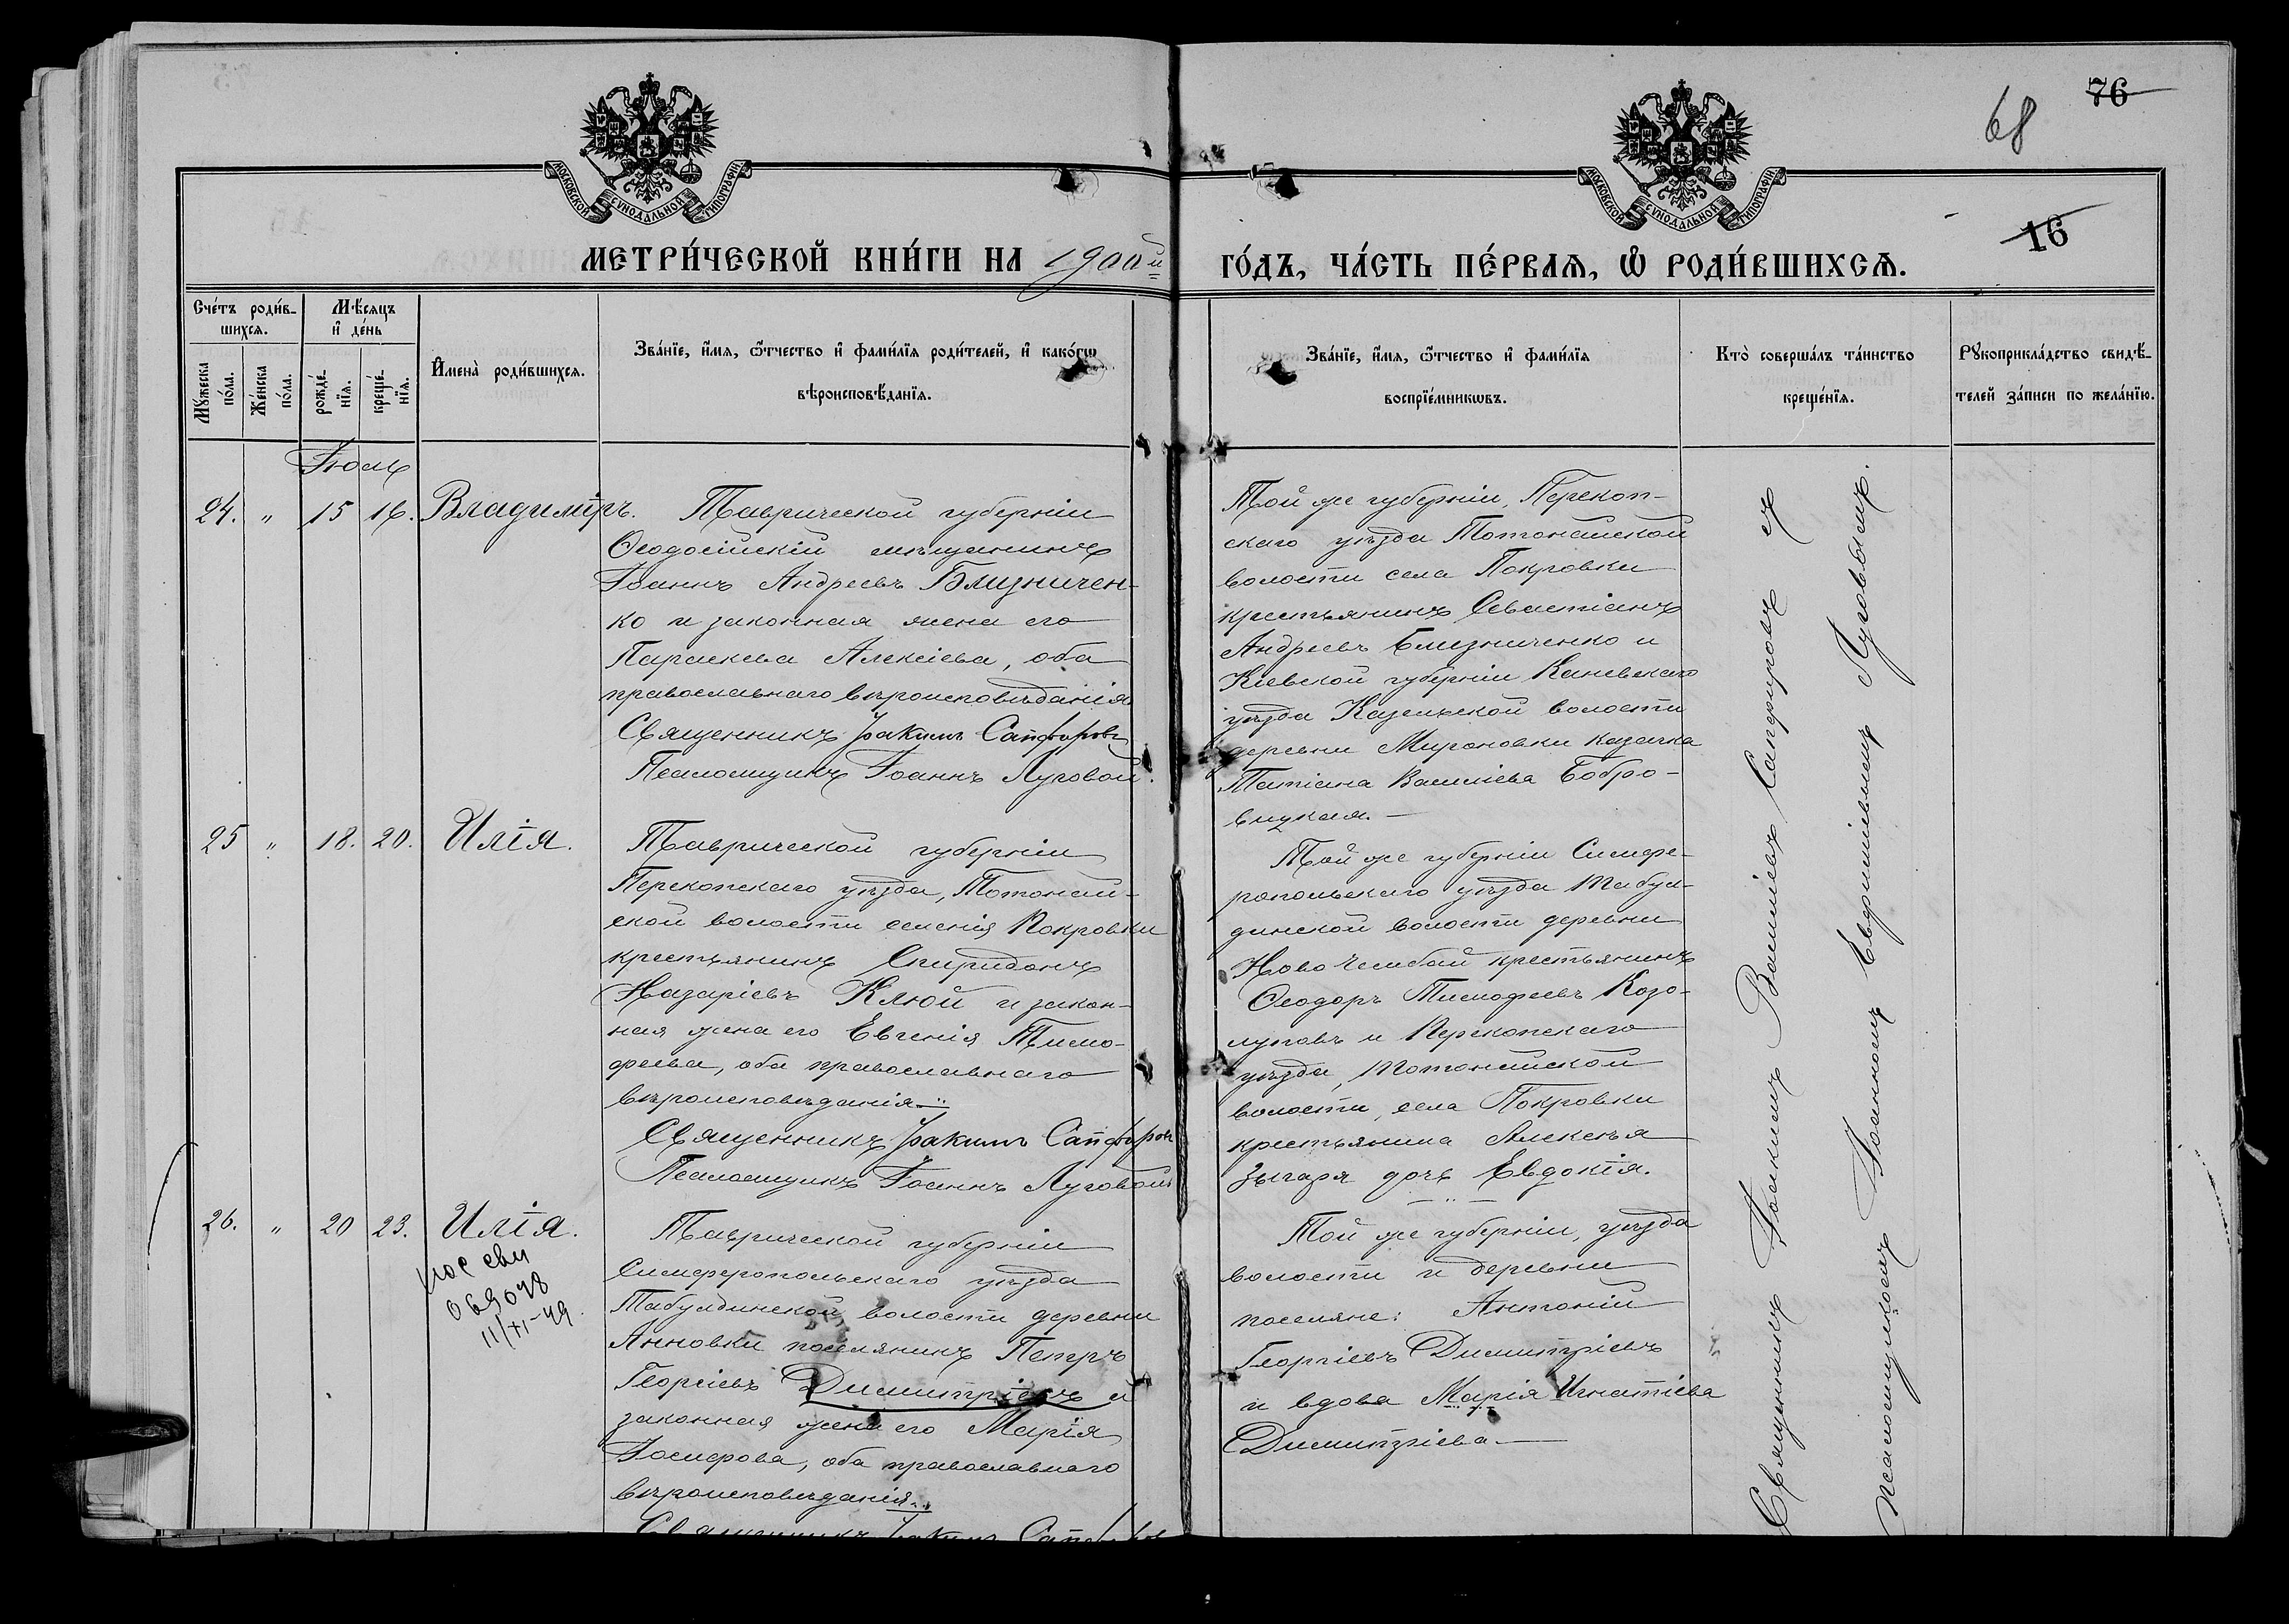 76
68
16
МОСКОВСКОЙ СУНОДАЛЬНОЙ ТИПОГРАФІИ
МОСКОВСКОЙ СУНОДАЛЬНОЙ ТИПОГРАФІИ
МЕТРИ́ЧЕСКОЙ КНИ́ГИ НА 1900й ГО́ДЪ, ЧА́СТЬ ПЕ́РВАЯ, Ѽ РОДИ́ВШИХСЯ.
Сче́тъ роди́в-
шихся.
Мꙋ́жеска
по́ла.
Же́нска
по́ла.
Мѣ́сяцъ
и҆ де́нь
рожде́-
нїя.
креще́-
нїя.
И҆мена̀ роди́вшихся.
Зва́нїе, и҆́мя, ѻ҆́тчество и҆ фами́лїя роди́телей, и҆ како́гѡ
вѣроисповѣ́данїя.
Зва́нїе, и҆́мя, ѻ҆́тчество и҆ фами́лїя
воспрїе́мникѡвъ.
Кто̀ соверша́лъ та́инство
креще́нїя.
Рꙋкоприкла́дство свидѣ́-
телей за́писи по жела́нїю.
Іюль
24. " 15 16. Владиміръ.
Таврической губерніи
Ѳеодосійскій мѣщанинъ
Іоаннъ Андреевъ Близничен-
ко и законная жена его
Параскева Алексіева, оба
православнаго вѣроисповѣданія
Священникъ Іоакимъ Сапфировъ
Псаломщикъ Іоаннъ Луговой.
Той же губерніи, Перекоп-
скаго уѣзда Тотанайской
волости села Покровки
крестьянинъ Севастіанъ
Андреевъ Близниченко и
Кіевской губерніи Каневскаго
уѣзда Казенской волости
деревни Мироновки казачка
Татіана Василіева Бобро-
вицкая.—
25 " 18. 20. Илія.
Таврической губерніи
Перекопскаго уѣзда, Тотанай-
ской волости селенія Покровки
крестьянинъ Спиридонъ
Назаріевъ Клюй и закон-
ная жена его Евгенія Тимо-
феева, оба православнаго
вѣроисповѣданія.
Священникъ Іоакимъ Сапфировъ
Псаломщикъ Іоаннъ Луговой
Той же губерніи Симфе-
ропольскаго уѣзда Табул-
динской волости деревни
Ново Чембай крестьянинъ
Ѳеодоръ Тимофеевъ Козо-
луповъ и Перекопскаго
уѣзда, Тотанайской
волости, села Покровки
крестьянина Алексѣя
Зыгаря дочь Евдокія.
26. " 20 23. Илія.
069048
11/XI-49.
Таврической губерніи
Симферопольскаго уѣзда
Табулдинской волости деревни
Анновки поселянинъ Петръ
Георгіевъ Димитріевъ и
законная жена его Марія
Іосифова, оба православнаго
вѣроисповѣданія.
Священникъ Іоакимъ Сапфировъ
Той же губерніи, уѣзда
волости и деревни
поселяне: Антоній
Георгіевъ Димитріевъ
и вдова Марія Игнатіева
Димитріева.—
Священникъ Іоакимъ Василіевъ Сапфировъ съ
псаломщикомъ Іоанномъ Евфиміевымъ Луговымъ.